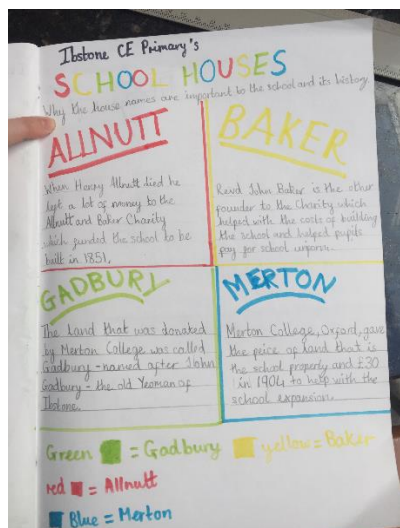 Ibstone CE Primary's
SCHOOL HOUSES
Why the house names are important to the school and its history.
ALLNUTT
When Henry Allnutt died he
left a lot of money to the
Allnutt and Baker Charity
which funded the school to be
built in 1851.
BAKER
Revd John Baker is the other
founder to the Charity which
helped with the costs of building
the school and helped pupils
pay for school uniform.
GADBURY
The land that was donated
by Merton College was called
Gadbury - named after John
Gadbury - the old Yeoman of
Ibstone.
MERTON
Merton College, Oxford, gave
the peice of land that is
the school property and £30
in 1904 to help with the
school expansion.
Green = Gadbury yellow = Baker
red = Allnutt
Blue = Merton